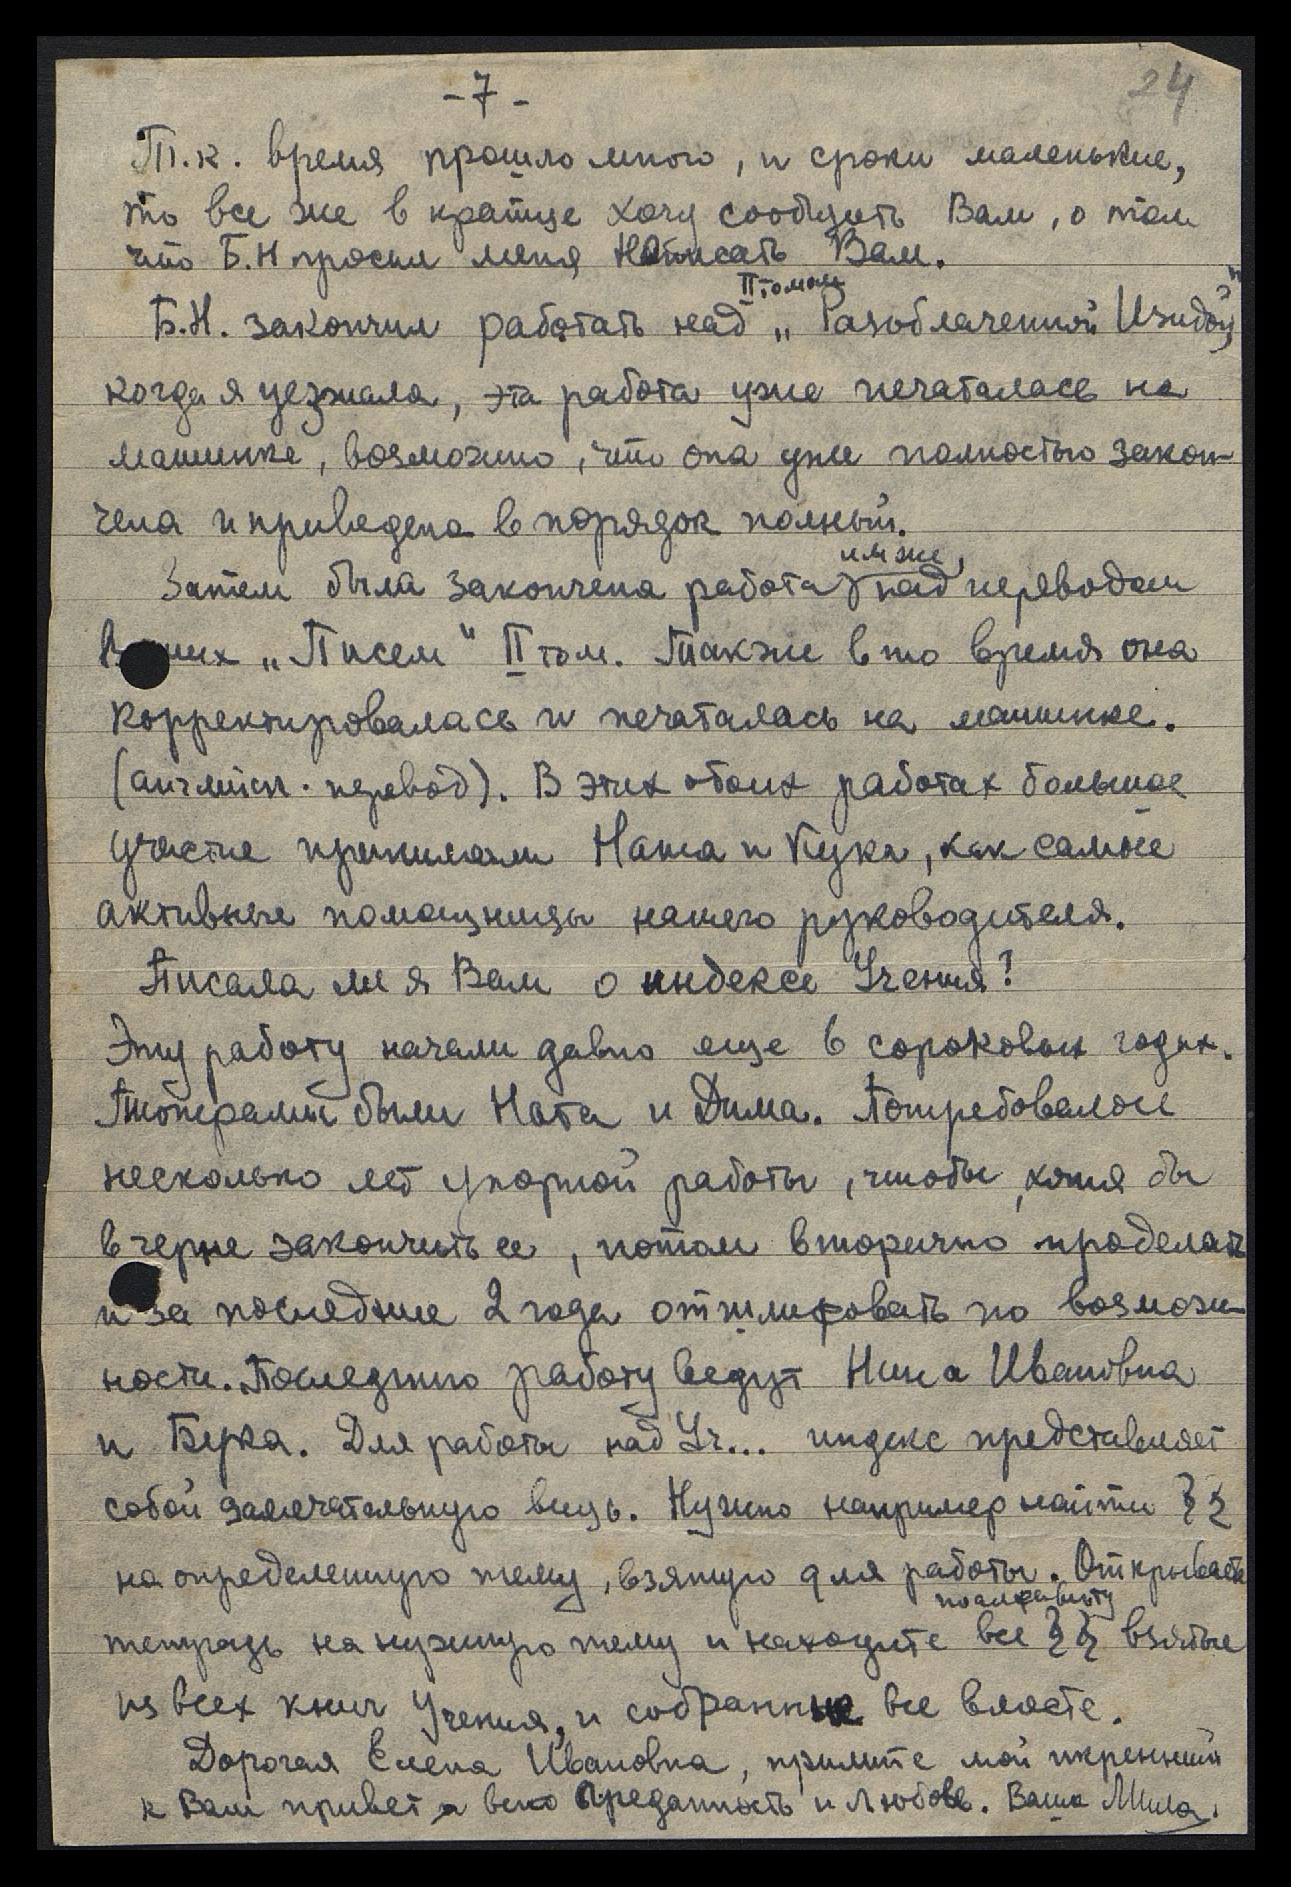 24
-7-
Т.к. время прошло много, и сроки маленькие,
то все же в кратце хочу сообщить Вам, о том
что Б.Н просил меня написать Вам.
II томом
Б.Н. закончил работать над „Разоблаченной Изидой"
когда я уезжала, эта работа уже печаталась на
машинке, возможно, что она уже полностью закон-
чена и приведена в порядок полный.
им же,
Затем была закончена работа над переводом
В ших „Писем" II том. Также в то время она
корректировалась и печаталась на машинке.
(английск. перевод). В этих обоих работах большое
участие принимали Ната и Бука, как самые
активные помощницы нашего руководителя.
Писала ли я Вам о индексе Учения?
Эту работу начали давно еще в сороковых годах.
Пионерами были Ната и Дима. Потребовалось
несколько лет упорной работы, чтобы, хотя бы
в черне закончить ее, потом вторично проделать
и за последние 2 года отшлифовать по возмож-
ности. Последнюю работу ведут Нина Ивановна
и Бука. Для работы над Уч... индекс представляет
собой замечательную вещь. Нужно например найти §§
на определенную тему, взятую для работы. Открываете
по алфавиту
тетрадь на нужную тему и находите все §§ взятые
из всех книг Учения, и собранные все вместе.
Дорогая Елена Ивановна, примите мой искренний
к Вам привет и всю преданность и любовь. Ваша Мила.